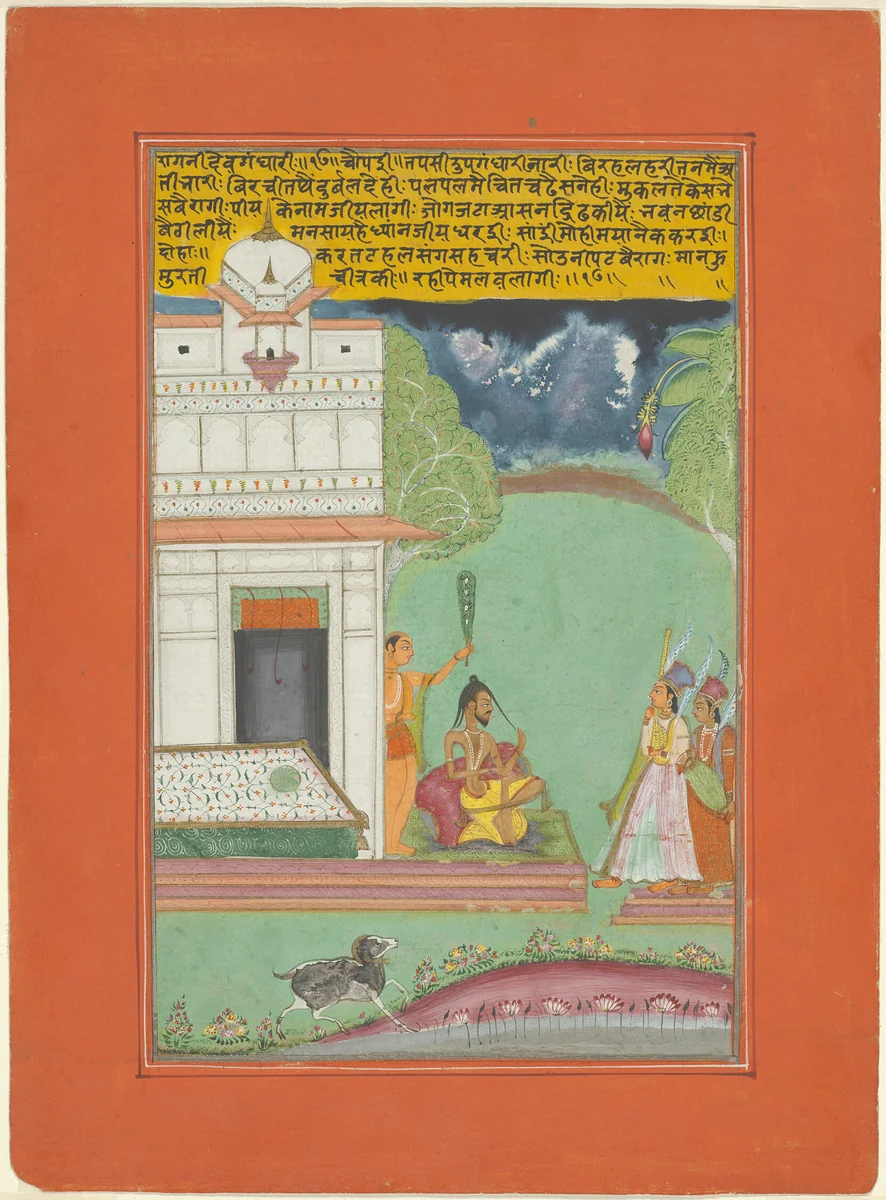 रागनी देवगंधारी॥१७॥चौपई॥तपसी रुप गंधारी नारी: बिरह लहरी तन मैं अ
ती जारी: बिरची तपै दुर्बल देही: पल पल मै चित चढै सनेही: मुकलत केस
सबै रागी: पीय के नाम जीय लागी: जोग जटा आसन द्रिढ कीयै:
मनसा यहै ध्यान जीय धरई: सांई मोही मया नैक करई:।
दोहा:॥ करत टहल संग सहचरी: सोउ नीपट बैराग: मानहु
मुरती चीत्र की॥ रही पेम लव लागी:॥१७॥ ॥ ॥